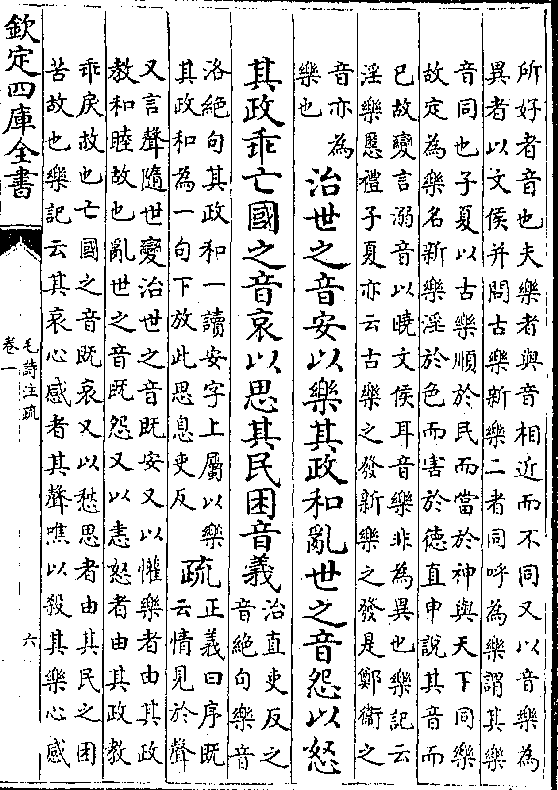 所好者音也夫樂者與音相近而不同又以音樂為
異者以文侯并問古樂新樂二者同呼為樂謂其樂
音同也子夏以古樂順於民而當於神與天下同樂
故定為樂名新樂淫於色而害於德直申說其音而
已故變言溺音以曉文侯耳音樂非為異也樂記云
淫樂慝禮子夏亦云古樂之發新樂之發是鄭衛之
音亦為
樂也
治世之音安以樂其政和亂世之音怨以怒
其政乖亡國之音哀以思其民困音義
治直吏反之
音絶句樂音
洛絶句其政和一讀安字上屬以樂
其政和為一句下放此思息吏反
疏
正義曰序既
云情見於聲
又言聲隨世變治世之音既安又以懽樂者由其政
教和睦故也亂世之音既怨又以恚怒者由其政教
乖戾故也亡國之音既哀又以愁思者由其民之困
苦故也樂記云其哀心感者其聲噍以殺其樂心感
欽定四庫全書
毛詩注疏
卷一
六